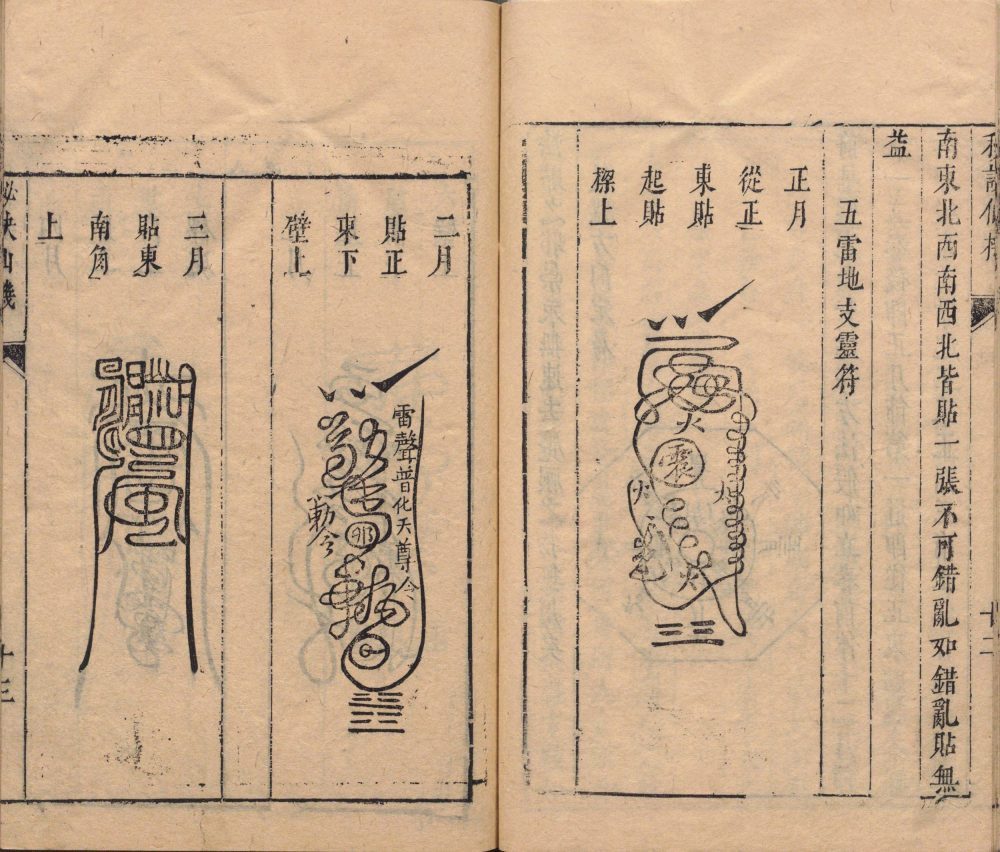 南東北西南西北皆貼一張不可錯亂如錯亂貼無
益
五雷地支靈符
正月
從正
東貼
起貼
樑上
火
震
火
火
火
十二
二月
貼正
東下
壁上
雷聲普化天尊令
勅令
三月
貼東
南角
上
十三